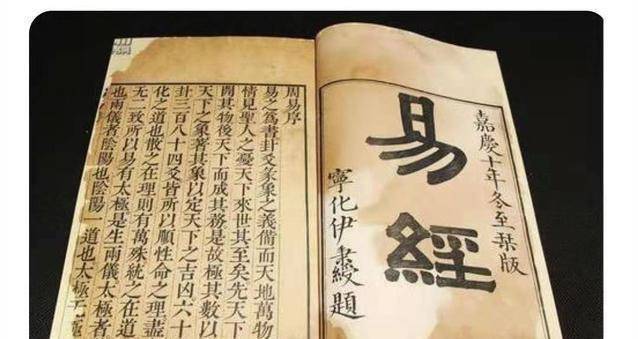 嘉慶十年冬至栞版
易經
寧化伊秉綬題
周易序
易之爲書卦爻彖象之義備而天地萬物
情見聖人之憂天下來世其至矣先天下
開其物後天下而成其務是故極其數以
天下之象著其象以定天下之吉凶六十
卦三百八十四爻皆所以順性命之理盡
化之道也散之在理則有萬殊統之在道
无二致所以易有太極是生兩儀太極者
也兩儀者陰陽也陰陽一道也太極无極